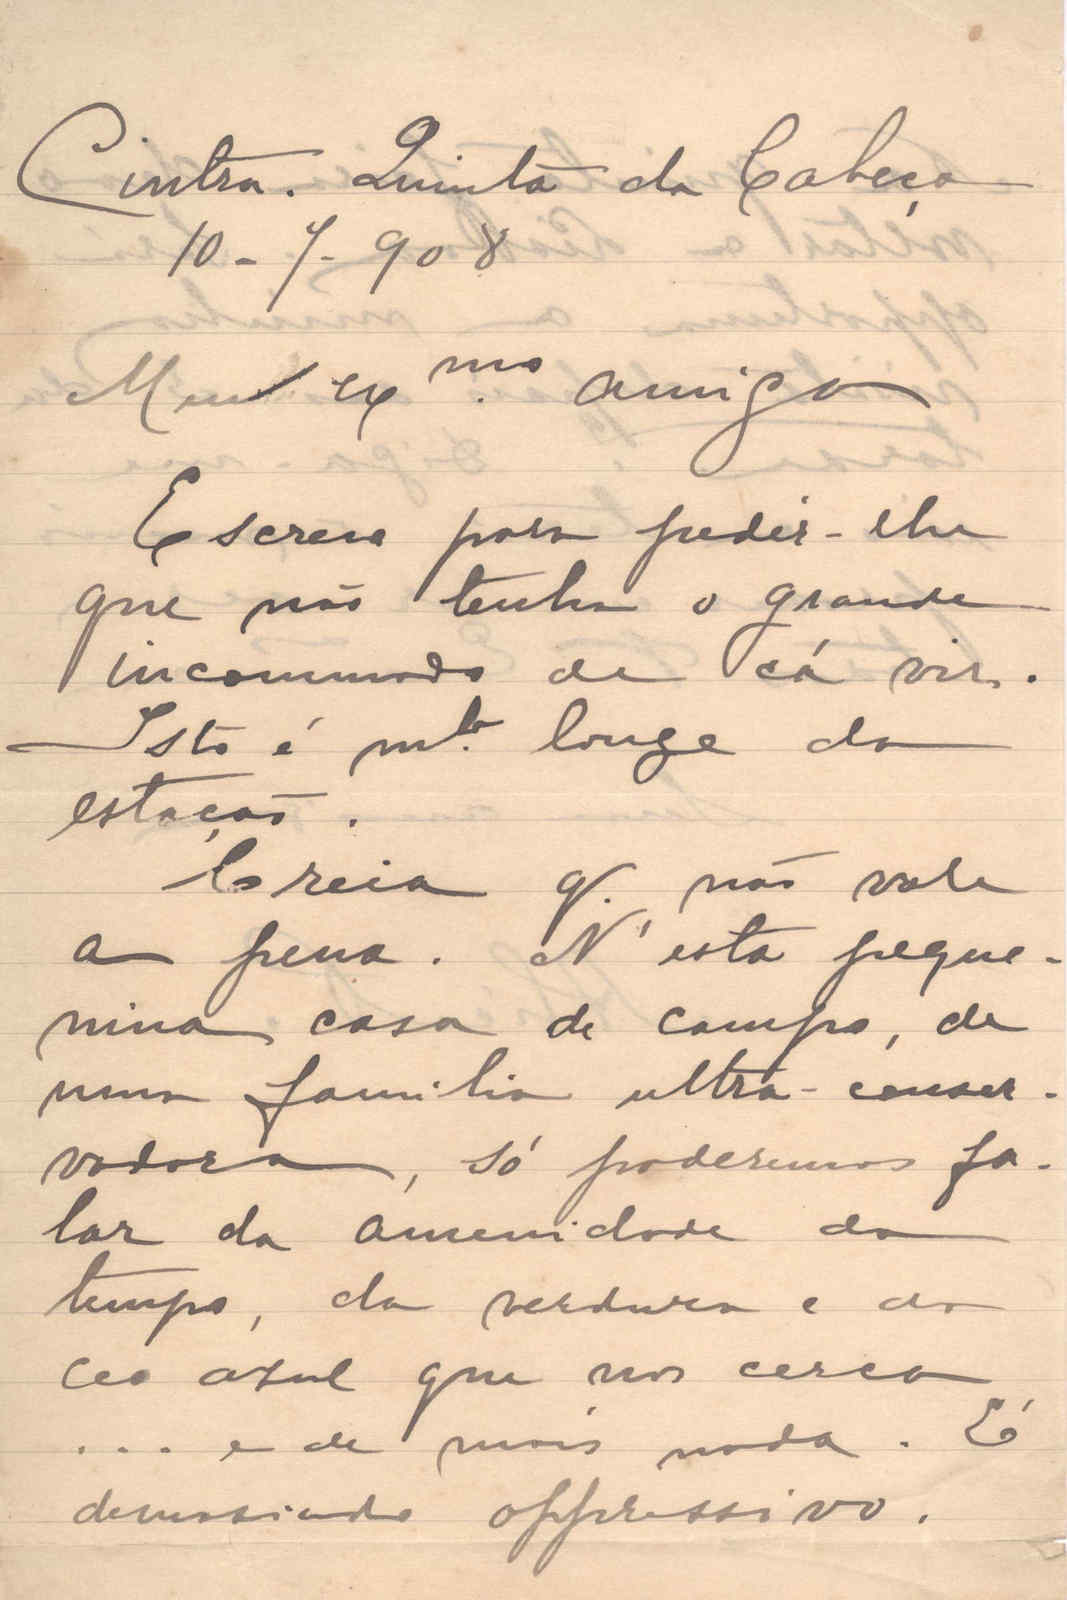 Cintra. Quinta da Cabeça
10-7-908
Meu exmo. amigo
Escrevo para pedir-lhe
que não tenha o grande
incommodo de cá vir.
Isto é mto. longe da
estação.
Creia q. não vale
a pena. N'esta peque-
nina casa de campo, de
uma familia ultra-conser-
vadora, só poderemos fa-
lar da amenidade do
tempo, da verdura e do
ceo azul que nos cerca
... e de mais nada. É
demasiado oppressivo.